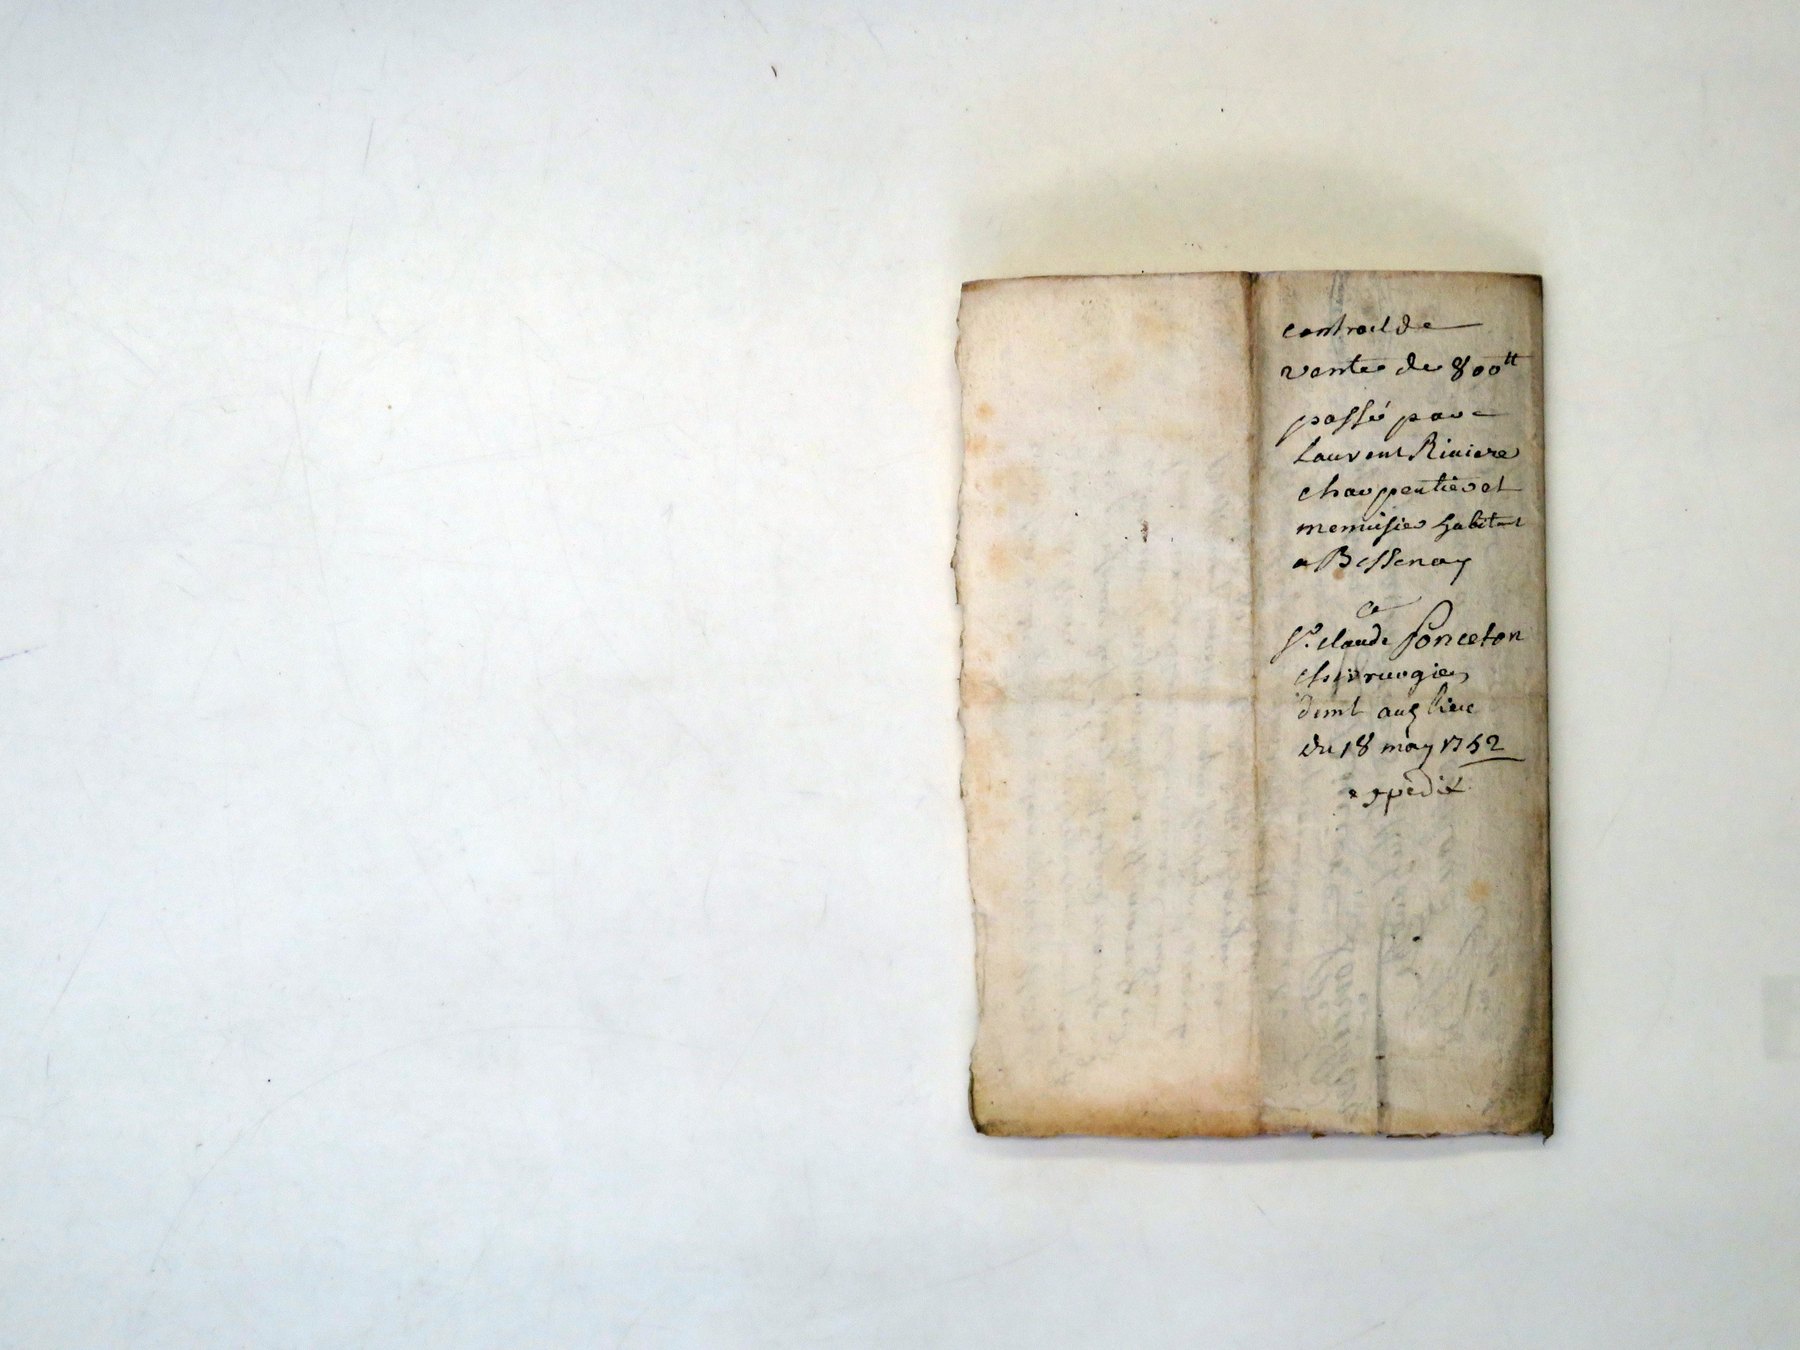 contract de
vente de 800ᵗᵗ
passé par
Laurent Riviere
charpentier et
menuisier habitant
a Bessenay
a
Sʳ. claude Ponceton
chirurgien
demt audᵗ lieu
du 18 may 1752
expedié